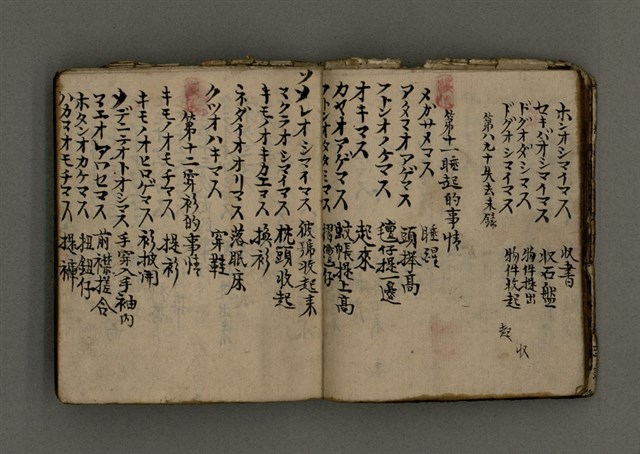 ホンオシマイマス 收書
セキバオシマイマス 收石盤
ドグオダシマス 物件提出
ドグオシマイマス 物件收起
起 收
第八九十失去未錄
第十一睡起的事情
メガサメマス 睡醒
アタマオアゲマス 頭探高
フトンオノケマス 提一邊
オキマス 起來
カヤオアゲマス 蚊帳提上高
フトンオタタミマス
ソレオシマイマス 彼號收起來
マクラオシマイマス 枕頭收起
キモノオキカエマス 換衫
ネダイオオリマス 落眠床
クツオハキマス 穿鞋
第十二穿衫的事情
キモノオモチマス 提衫
キモノオヒロゲマス 衫披開
ソデニテオトオシマス 手穿入手袖內
マエオアワセマス 前襟搓合
ホタンオカケマス 扭鈕仔
ハカマオモチマス 提褲